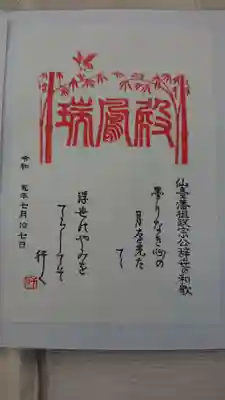 瑞鳳殿
仙臺藩祖政宗公辞世の和歌
曇りなき心の
月を先た
てゝ
浮世のやみを
てらしてそ
行く
令和 元年七月拾七日